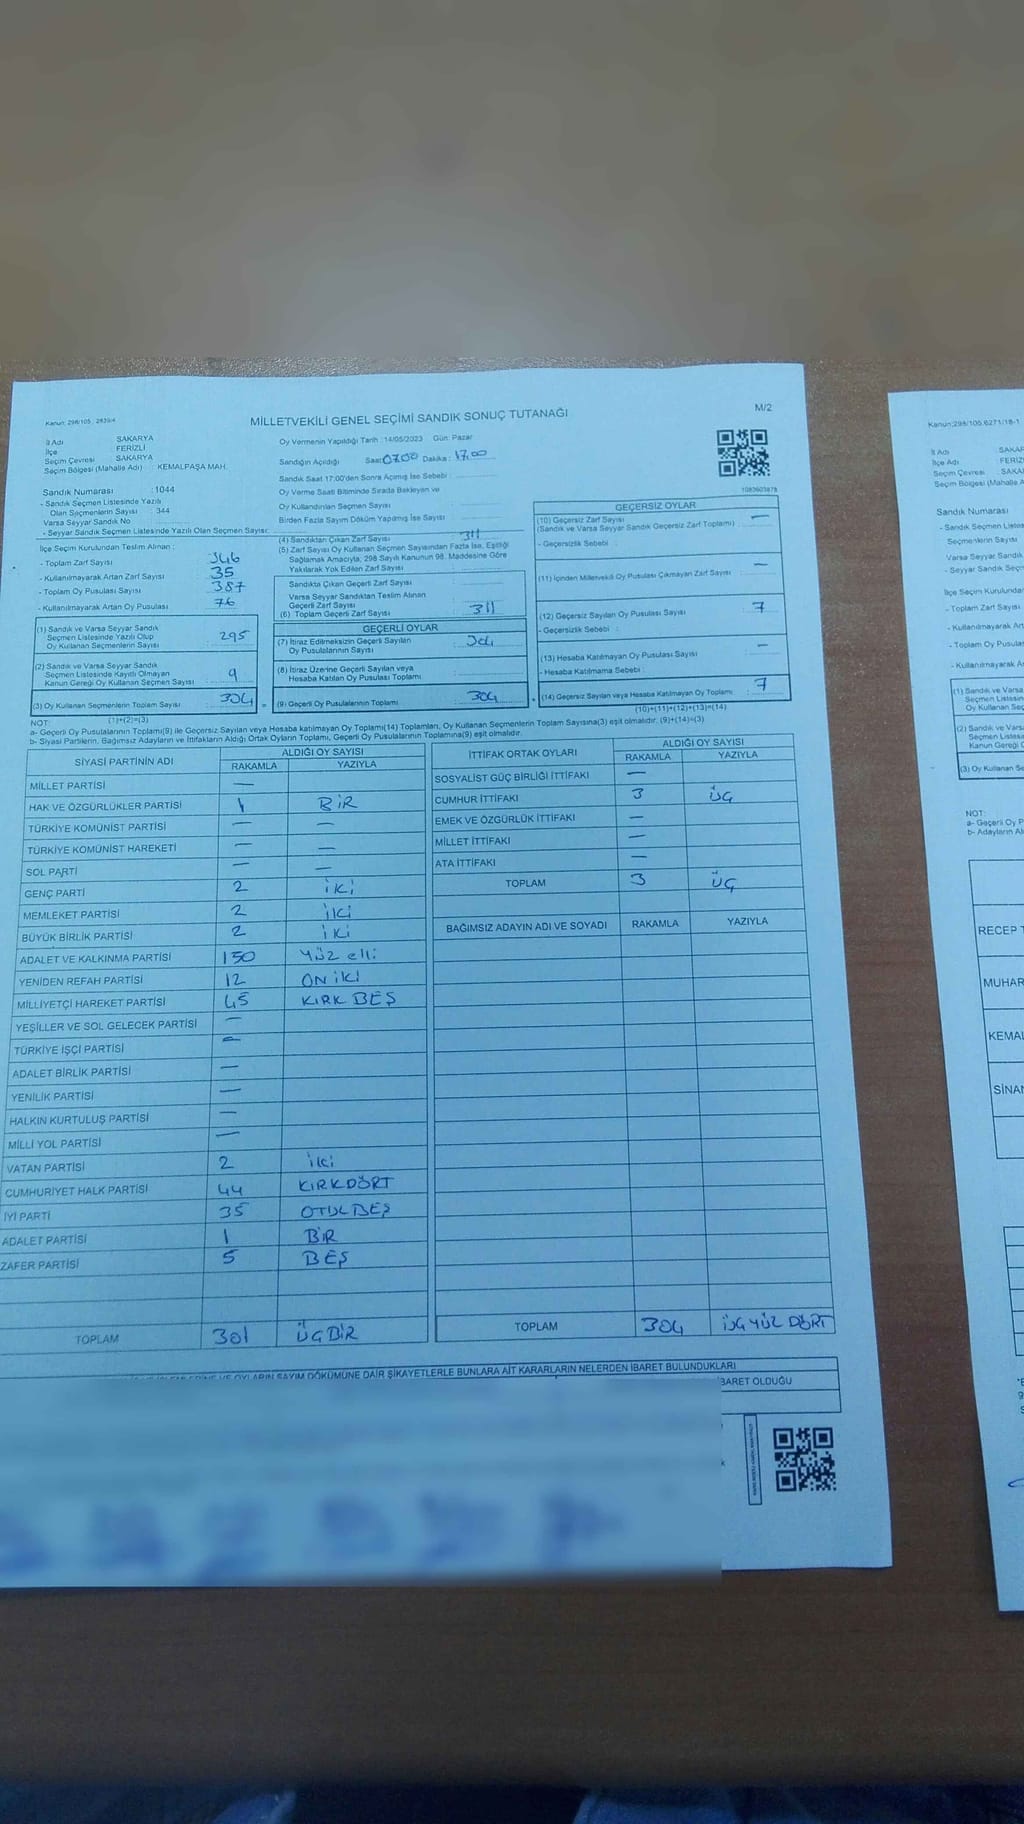 Kanun: 298/105 ; 2839/4
MİLLETVEKİLİ GENEL SEÇİMİ SANDIK SONUÇ TUTANAĞI
M/2
İl Adı SAKARYA
İlçe FERİZLİ
Seçim Çevresi SAKARYA
Seçim Bölgesi (Mahalle Adı) KEMALPAŞA MAH.
Oy Vermenin Yapıldığı Tarih : 14/05/2023 Gün: Pazar
Sandığın Açıldığı Saat: 07.00 Dakika : 17.00
Sandık Saat 17:00'den Sonra Açılmış İse Sebebi :
Oy Verme Saati Bitiminde Sırada Bekleyen ve
Oy Kullandırılan Seçmen Sayısı
Birden Fazla Sayım Döküm Yapılmış İse Sayısı
1083603878
Sandık Numarası : 1044
- Sandık Seçmen Listesinde Yazılı
Olan Seçmenlerin Sayısı : 344
Varsa Seyyar Sandık No
- Seyyar Sandık Seçmen Listesinde Yazılı Olan Seçmen Sayısı:
İlçe Seçim Kurulundan Teslim Alınan :
- Toplam Zarf Sayısı 346
- Kullanılmayarak Artan Zarf Sayısı 35
- Toplam Oy Pusulası Sayısı 387
- Kullanılmayarak Artan Oy Pusulası 76
(1) Sandık ve Varsa Seyyar Sandık
Seçmen Listesinde Yazılı Olup
Oy Kullanan Seçmenlerin Sayısı 295
(2) Sandık ve Varsa Seyyar Sandık
Seçmen Listesinde Kayıtlı Olmayan
Kanun Gereği Oy Kullanan Seçmen Sayısı 9
(3) Oy Kullanan Seçmenlerin Toplam Sayısı 304 =
(1)+(2)=(3)
(4) Sandıktan Çıkan Zarf Sayısı 311
(5) Zarf Sayısı Oy Kullanan Seçmen Sayısından Fazla İse, Eşitliği
Sağlamak Amacıyla, 298 Sayılı Kanunun 98. Maddesine Göre
Yakılarak Yok Edilen Zarf Sayısı
Sandıkta Çıkan Geçerli Zarf Sayısı
Varsa Seyyar Sandıktan Teslim Alınan
Geçerli Zarf Sayısı
(6) Toplam Geçerli Zarf Sayısı 311
GEÇERLİ OYLAR
(7) İtiraz Edilmeksizin Geçerli Sayılan
Oy Pusulalarının Sayısı 304
(8) İtiraz Üzerine Geçerli Sayılan veya
Hesaba Katılan Oy Pusulası Toplamı
(9) Geçerli Oy Pusulalarının Toplamı 304
GEÇERSİZ OYLAR
(10) Geçersiz Zarf Sayısı
(Sandık ve Varsa Seyyar Sandık Geçersiz Zarf Toplamı) —
- Geçersizlik Sebebi :
(11) İçinden Milletvekili Oy Pusulası Çıkmayan Zarf Sayısı —
(12) Geçersiz Sayılan Oy Pusulası Sayısı 7
- Geçersizlik Sebebi :
(13) Hesaba Katılmayan Oy Pusulası Sayısı —
- Hesaba Katılmama Sebebi :
(14) Geçersiz Sayılan veya Hesaba Katılmayan Oy Toplamı 7
(10)+(11)+(12)+(13)=(14)
NOT:
a- Geçerli Oy Pusulalarının Toplamı(9) ile Geçersiz Sayılan veya Hesaba katılmayan Oy Toplamı(14) Toplamları, Oy Kullanan Seçmenlerin Toplam Sayısına(3) eşit olmalıdır. (9)+(14)=(3)
b- Siyasi Partilerin, Bağımsız Adayların ve İttifakların Aldığı Ortak Oyların Toplamı, Geçerli Oy Pusulalarının Toplamına(9) eşit olmalıdır.
SİYASİ PARTİNİN ADI ALDIĞI OY SAYISI
RAKAMLA YAZIYLA
MİLLET PARTİSİ —
HAK VE ÖZGÜRLÜKLER PARTİSİ 1 BİR
TÜRKİYE KOMÜNİST PARTİSİ — —
TÜRKİYE KOMÜNİST HAREKETİ — —
SOL PARTİ — —
GENÇ PARTİ 2 iKi
MEMLEKET PARTİSİ 2 iki
BÜYÜK BİRLİK PARTİSİ 2 iKi
ADALET VE KALKINMA PARTİSİ 150 YÜZ elli
YENİDEN REFAH PARTİSİ 12 ON iKi
MİLLİYETÇİ HAREKET PARTİSİ 45 KIRK BEŞ
YEŞİLLER VE SOL GELECEK PARTİSİ —
TÜRKİYE İŞÇİ PARTİSİ —
ADALET BİRLİK PARTİSİ —
YENİLİK PARTİSİ —
HALKIN KURTULUŞ PARTİSİ —
MİLLİ YOL PARTİSİ —
VATAN PARTİSİ 2 iki
CUMHURİYET HALK PARTİSİ 44 KIRKDÖRT
İYİ PARTİ 35 OTUZ BEŞ
ADALET PARTİSİ 1 BİR
ZAFER PARTİSİ 5 BEŞ
TOPLAM 301 ÜÇ BİR
İTTİFAK ORTAK OYLARI ALDIĞI OY SAYISI
RAKAMLA YAZIYLA
SOSYALİST GÜÇ BİRLİĞİ İTTİFAKI —
CUMHUR İTTİFAKI 3 ÜÇ
EMEK VE ÖZGÜRLÜK İTTİFAKI —
MİLLET İTTİFAKI —
ATA İTTİFAKI —
TOPLAM 3 ÜÇ
BAĞIMSIZ ADAYIN ADI VE SOYADI RAKAMLA YAZIYLA
TOPLAM 304 ÜÇ YÜZ DÖRT
OYLARIN SAYIM DÖKÜMÜNE DAİR ŞİKAYETLERLE BUNLARA AİT KARARLARIN NELERDEN İBARET BULUNDUKLARI
İBARET OLDUĞU
Kanun:298/100,6271/18-1
İl Adı
İlçe Adı
Seçim Çevresi
Seçim Bölgesi (Mahalle
Sandık Numarası
- Sandık Seçmen
Seçmenlerin Sayısı
Varsa Seyyar Sandık
- Seyyar Sandık
İlçe Seçim
- Toplam Zarf Sayısı
- Kullanılmayarak
- Toplam Oy
- Kullanılmayarak
(1) Sandık ve Varsa
Seçmen
Oy Kullanan
(2) Sandık ve Varsa
Seçmen
Kanun
(3) Oy Kullanan
NOT:
a- Geçerli Oy
b- Adayların
RECEP